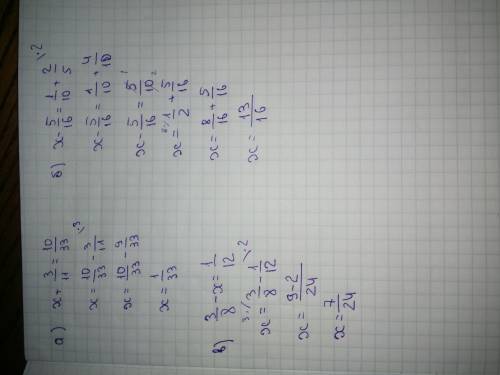 а) x + 3/11 = 10/33
x = 10/33 - 3/11 \·3
x = 10/33 - 9/33
x = 1/33
б) x - 5/16 = 1/10 + 2/5 \·2
x - 5/16 = 1/10 + 4/10
x - 5/16 = 5/10
x = 1/2 + 5/16
x = 8/16 + 5/16
x = 13/16
в) 3/8 - x = 1/12
x = 3·/ 3/8 - 1/12 \·2
x = 9-2/24
x = 7/24